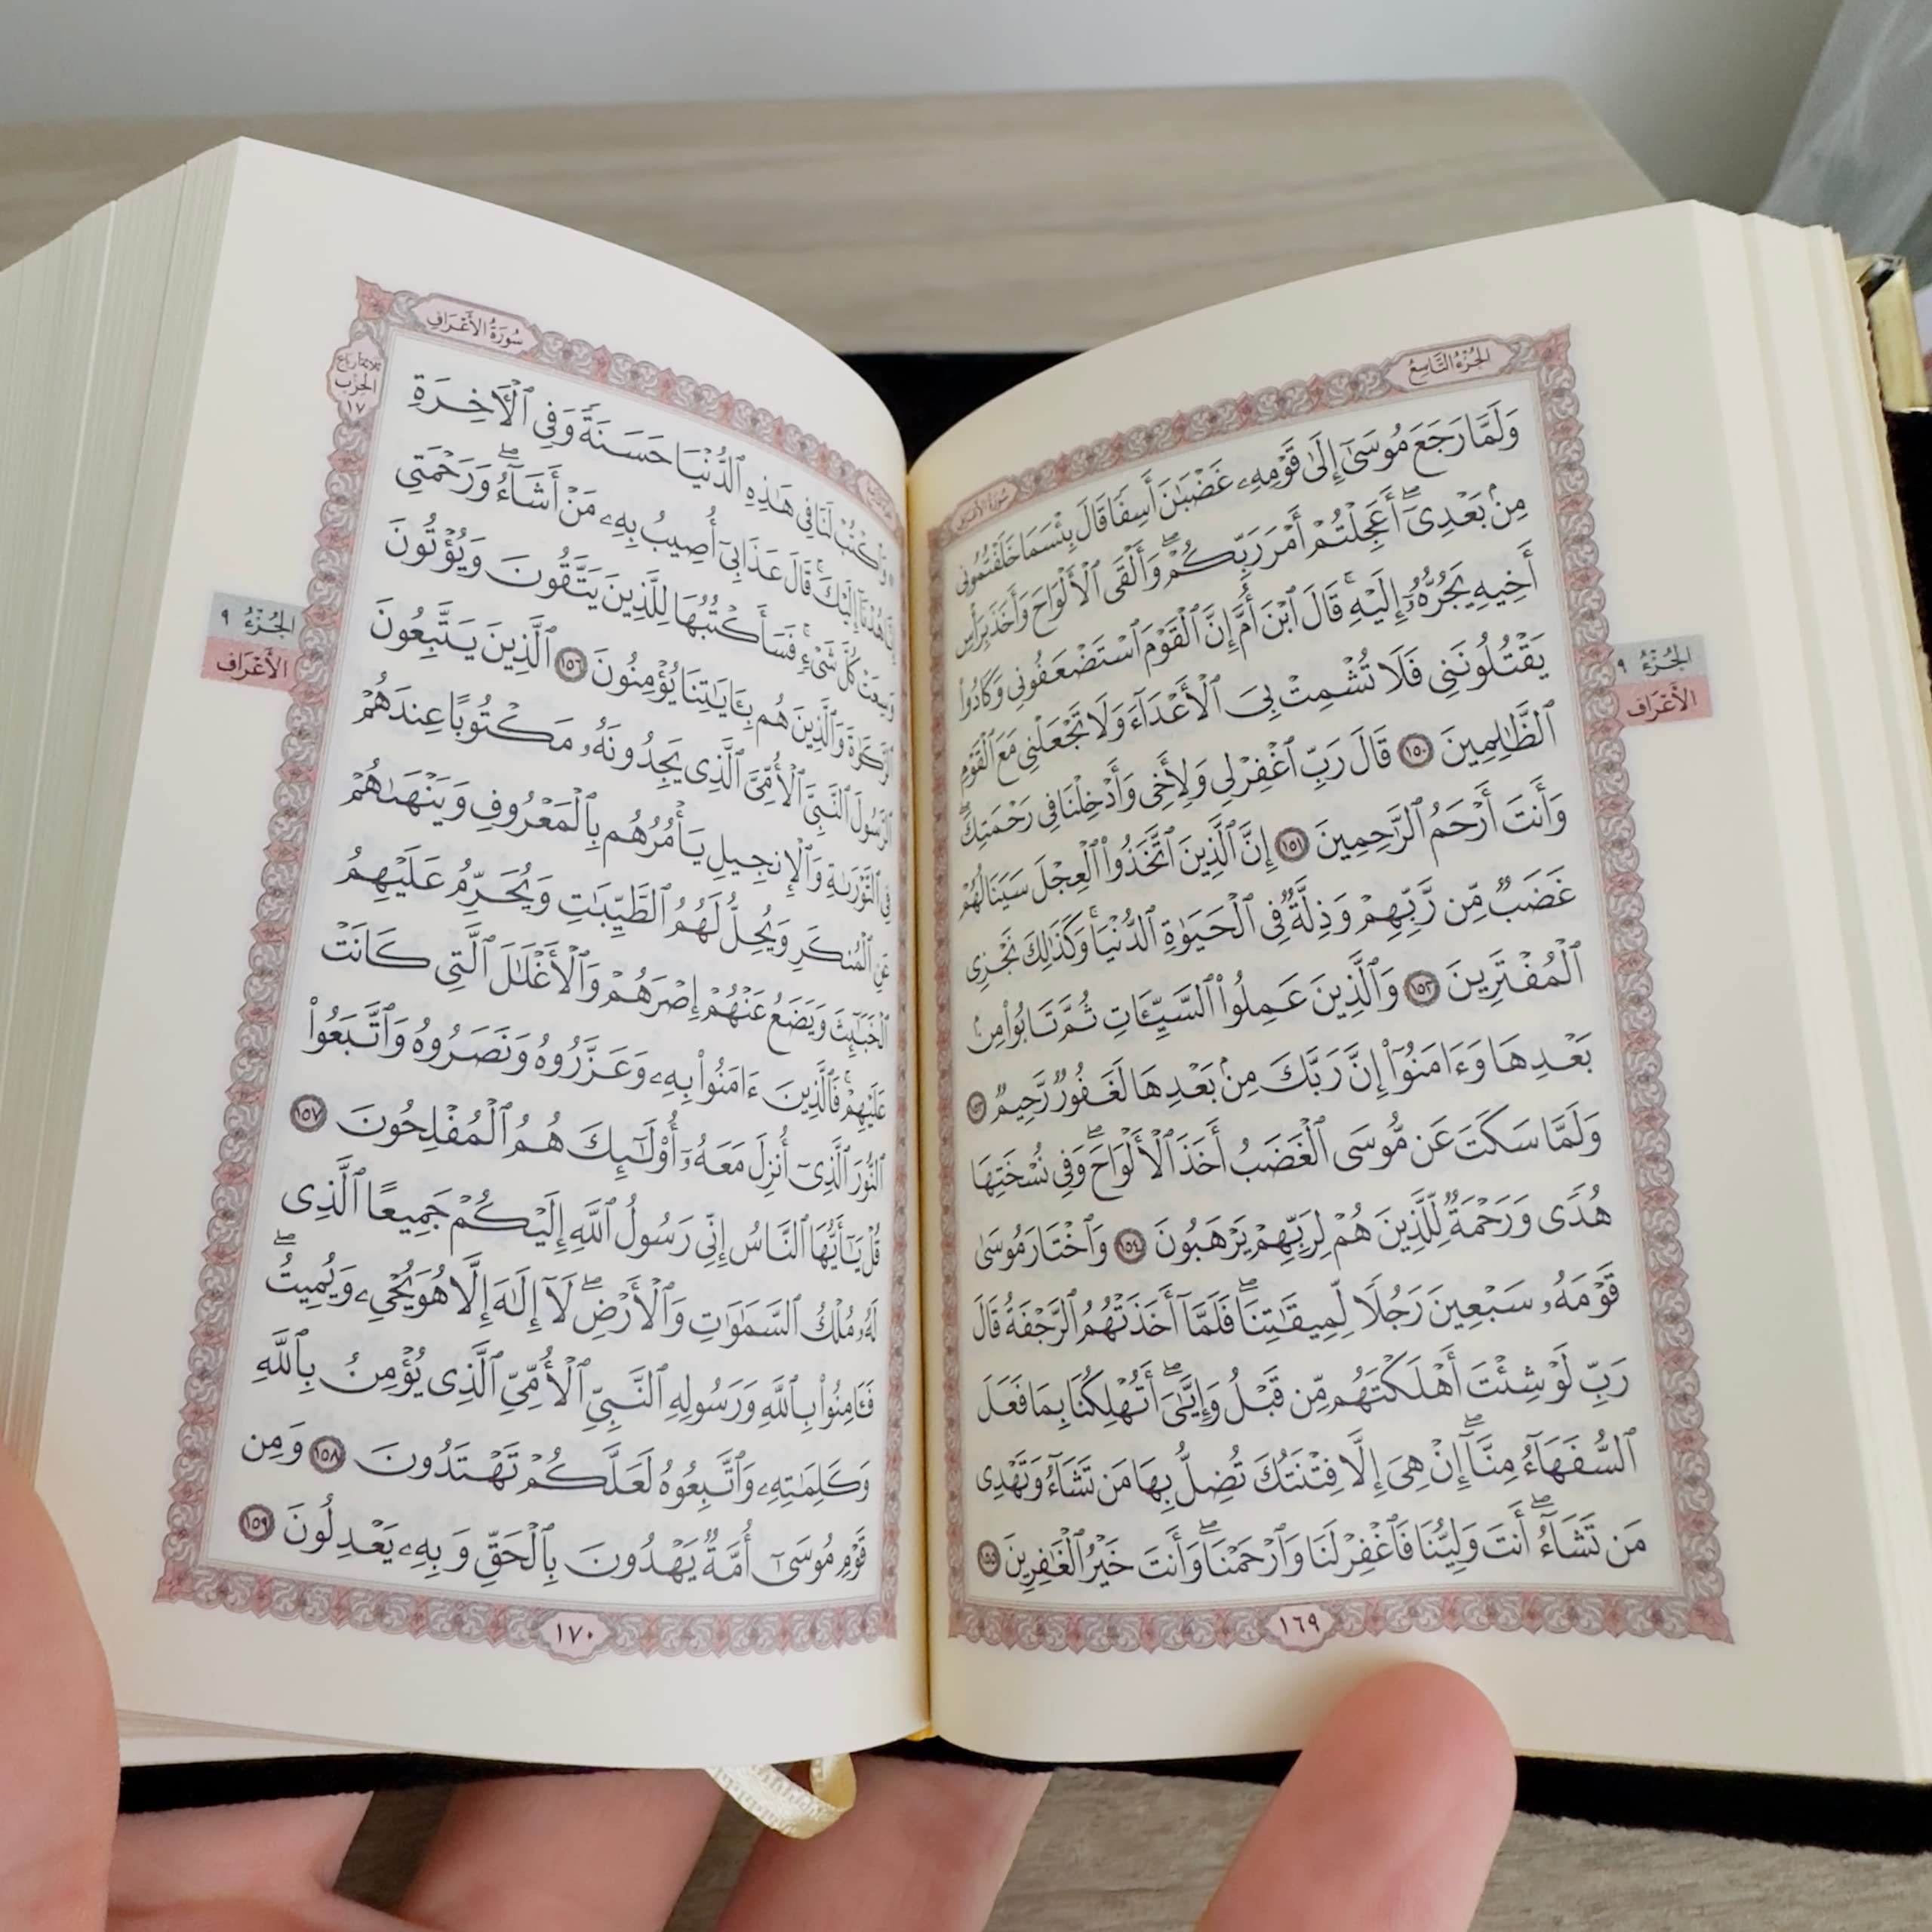 الجُزْءُ التَّاسِعُ
سُورَةُ الأَعْرَافِ
وَلَمَّا رَجَعَ مُوسَىٰٓ إِلَىٰ قَوْمِهِۦ غَضْبَٰنَ أَسِفًا قَالَ بِئْسَمَا خَلَفْتُمُونِى
مِنۢ بَعْدِىٓۖ أَعَجِلْتُمْ أَمْرَ رَبِّكُمْۖ وَأَلْقَى ٱلْأَلْوَاحَ وَأَخَذَ بِرَأْسِ
أَخِيهِ يَجُرُّهُۥٓ إِلَيْهِۚ قَالَ ٱبْنَ أُمَّ إِنَّ ٱلْقَوْمَ ٱسْتَضْعَفُونِى وَكَادُوا۟
يَقْتُلُونَنِى فَلَا تُشْمِتْ بِىَ ٱلْأَعْدَآءَ وَلَا تَجْعَلْنِى مَعَ ٱلْقَوْمِ
ٱلظَّٰلِمِينَ ١٥٠ قَالَ رَبِّ ٱغْفِرْ لِى وَلِأَخِى وَأَدْخِلْنَا فِى رَحْمَتِكَۖ
وَأَنتَ أَرْحَمُ ٱلرَّٰحِمِينَ ١٥١ إِنَّ ٱلَّذِينَ ٱتَّخَذُوا۟ ٱلْعِجْلَ سَيَنَالُهُمْ
غَضَبٌ مِّن رَّبِّهِمْ وَذِلَّةٌ فِى ٱلْحَيَوٰةِ ٱلدُّنْيَاۚ وَكَذَٰلِكَ نَجْزِى
ٱلْمُفْتَرِينَ ١٥٢ وَٱلَّذِينَ عَمِلُوا۟ ٱلسَّيِّـَٔاتِ ثُمَّ تَابُوا۟ مِنۢ
بَعْدِهَا وَءَامَنُوٓا۟ إِنَّ رَبَّكَ مِنۢ بَعْدِهَا لَغَفُورٌ رَّحِيمٌ ١٥٣
وَلَمَّا سَكَتَ عَن مُّوسَى ٱلْغَضَبُ أَخَذَ ٱلْأَلْوَاحَۖ وَفِى نُسْخَتِهَا
هُدًى وَرَحْمَةٌ لِّلَّذِينَ هُمْ لِرَبِّهِمْ يَرْهَبُونَ ١٥٤ وَٱخْتَارَ مُوسَىٰ
قَوْمَهُۥ سَبْعِينَ رَجُلًا لِّمِيقَٰتِنَاۖ فَلَمَّآ أَخَذَتْهُمُ ٱلرَّجْفَةُ قَالَ
رَبِّ لَوْ شِئْتَ أَهْلَكْتَهُم مِّن قَبْلُ وَإِيَّٰىَۖ أَتُهْلِكُنَا بِمَا فَعَلَ
ٱلسُّفَهَآءُ مِنَّآۖ إِنْ هِىَ إِلَّا فِتْنَتُكَ تُضِلُّ بِهَا مَن تَشَآءُ وَتَهْدِى
مَن تَشَآءُۖ أَنتَ وَلِيُّنَا فَٱغْفِرْ لَنَا وَٱرْحَمْنَاۖ وَأَنتَ خَيْرُ ٱلْغَٰفِرِينَ ١٥٥
١٦٩
الجُزْءُ ٩
الأَعْرَاف
سُورَةُ الأَعْرَافِ
ثلاثة أرباع
الحِزْب
١٧
وَٱكْتُبْ لَنَا فِى هَٰذِهِ ٱلدُّنْيَا حَسَنَةً وَفِى ٱلْءَاخِرَةِ
إِنَّا هُدْنَآ إِلَيْكَۚ قَالَ عَذَابِىٓ أُصِيبُ بِهِۦ مَنْ أَشَآءُۖ وَرَحْمَتِى
وَسِعَتْ كُلَّ شَىْءٍۚ فَسَأَكْتُبُهَا لِلَّذِينَ يَتَّقُونَ وَيُؤْتُونَ
ٱلزَّكَوٰةَ وَٱلَّذِينَ هُم بِـَٔايَٰتِنَا يُؤْمِنُونَ ١٥٦ ٱلَّذِينَ يَتَّبِعُونَ
ٱلرَّسُولَ ٱلنَّبِىَّ ٱلْأُمِّىَّ ٱلَّذِى يَجِدُونَهُۥ مَكْتُوبًا عِندَهُمْ
فِى ٱلتَّوْرَىٰةِ وَٱلْإِنجِيلِ يَأْمُرُهُم بِٱلْمَعْرُوفِ وَيَنْهَىٰهُمْ
عَنِ ٱلْمُنكَرِ وَيُحِلُّ لَهُمُ ٱلطَّيِّبَٰتِ وَيُحَرِّمُ عَلَيْهِمُ
ٱلْخَبَٰٓئِثَ وَيَضَعُ عَنْهُمْ إِصْرَهُمْ وَٱلْأَغْلَٰلَ ٱلَّتِى كَانَتْ
عَلَيْهِمْۚ فَٱلَّذِينَ ءَامَنُوا۟ بِهِۦ وَعَزَّرُوهُ وَنَصَرُوهُ وَٱتَّبَعُوا۟
ٱلنُّورَ ٱلَّذِىٓ أُنزِلَ مَعَهُۥٓۙ أُو۟لَٰٓئِكَ هُمُ ٱلْمُفْلِحُونَ ١٥٧
قُلْ يَٰٓأَيُّهَا ٱلنَّاسُ إِنِّى رَسُولُ ٱللَّهِ إِلَيْكُمْ جَمِيعًا ٱلَّذِى
لَهُۥ مُلْكُ ٱلسَّمَٰوَٰتِ وَٱلْأَرْضِۖ لَآ إِلَٰهَ إِلَّا هُوَ يُحْىِۦ وَيُمِيتُۖ
فَـَٔامِنُوا۟ بِٱللَّهِ وَرَسُولِهِ ٱلنَّبِىِّ ٱلْأُمِّىِّ ٱلَّذِى يُؤْمِنُ بِٱللَّهِ
وَكَلِمَٰتِهِۦ وَٱتَّبِعُوهُ لَعَلَّكُمْ تَهْتَدُونَ ١٥٨ وَمِن
قَوْمِ مُوسَىٰٓ أُمَّةٌ يَهْدُونَ بِٱلْحَقِّ وَبِهِۦ يَعْدِلُونَ ١٥٩
١٧٠
الجُزْءُ ٩
الأَعْرَاف